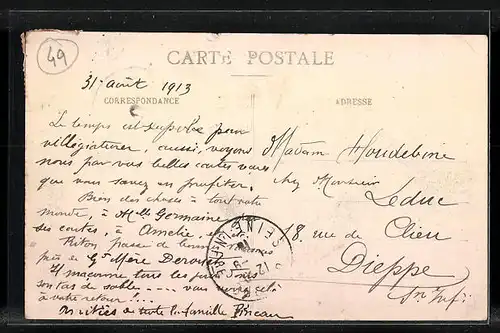 49
CARTE POSTALE
31 août 1913
CORRESPONDANCE
ADRESSE
Le temps est superbe pour
villégiaturer, aussi, voyons
nous par vos belles cartes vues
que vous savez en profiter.
Bien des choses à tout votre
monde, à Melle Germaine
à Amélie,
passe de bonnes vacances
près de Gd Mère
Il maçonne tous les jours
son tas de sable---- vous verrez cela
à votre retour!...
Amitiés de toute la famille
Madame Houdebine
chez Monsieur
Leduc
18, rue de Clieu
Dieppe
Sne Infre
SEINE